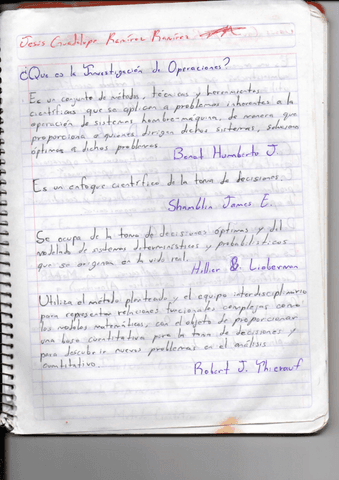 Jesús Guadalupe Ramírez Ramírez
¿Que es la Investigación de Operaciones?
Es un conjunto de método, técnicas y herramientas
científicas que se aplican a problemas inherentes a la
operación de sistemas hombre-máquina, de manera que
proporciona a quienes dirigen dichos sistemas, soluciones
óptimas a dichos problemas.
Humberto J.
Es un enfoque científico de la toma de decisiones.
Shamblin James E.
Se ocupa de la toma de decisiones óptimas y del
modelado de sistemas determinísticos y probabilísticos
que se originan en la vida real.
Hillier & Lieberman
Utiliza el método planteado y el equipo interdisciplinario
para representar relaciones funcionales complejas como
los modelos matemáticos, con el objeto de proporcionar
una base cuantitativa para la toma de decisiones y
para descubrir nuevos problemas en el análisis
cuantitativo.
Robert J. Thierauf